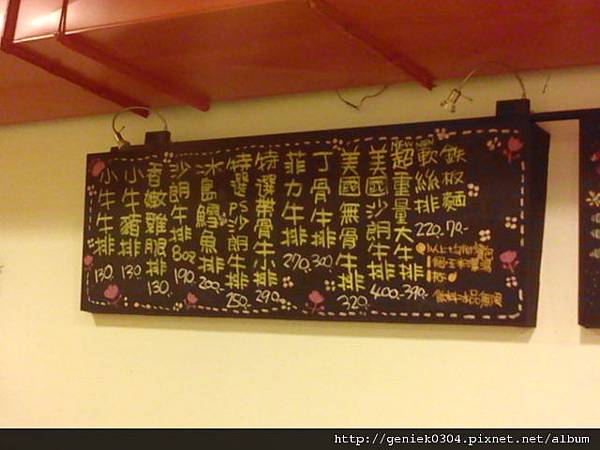 鉄板麵 70.-
軟絲排 220.-
超重量大牛排 390.-
美國沙朗牛排 400.-
美國無骨牛排 320.
丁骨牛排 300.
菲力牛排 270.
特選帶骨牛小排 290.
特選PS沙朗牛排 250.
冰島鱈魚排 200.
沙朗牛排 8oz 190.
香嫩雞腿排 130.
小牛豬排 130
小牛牛排 130.
http://geniek0304.pixnet.net/album